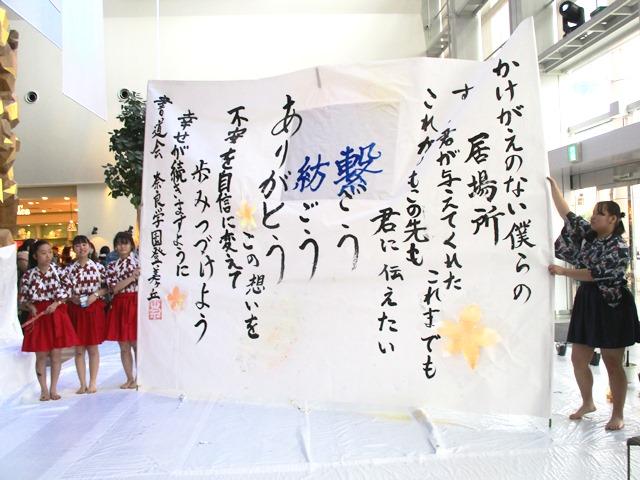 かけがえのない僕らの
居場所
す 君が与えてくれた
これまでも
これからもこの先も
君に伝えたい
繋ごう
紡ごう
ありがとう
この想いを
不安を自信に変えて
歩みつづけよう
幸せが続きますように
書道会 奈良学園登美ヶ丘